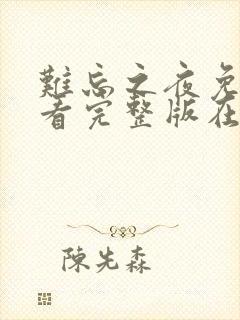 難忘之夜免
看完整版在
陳先森